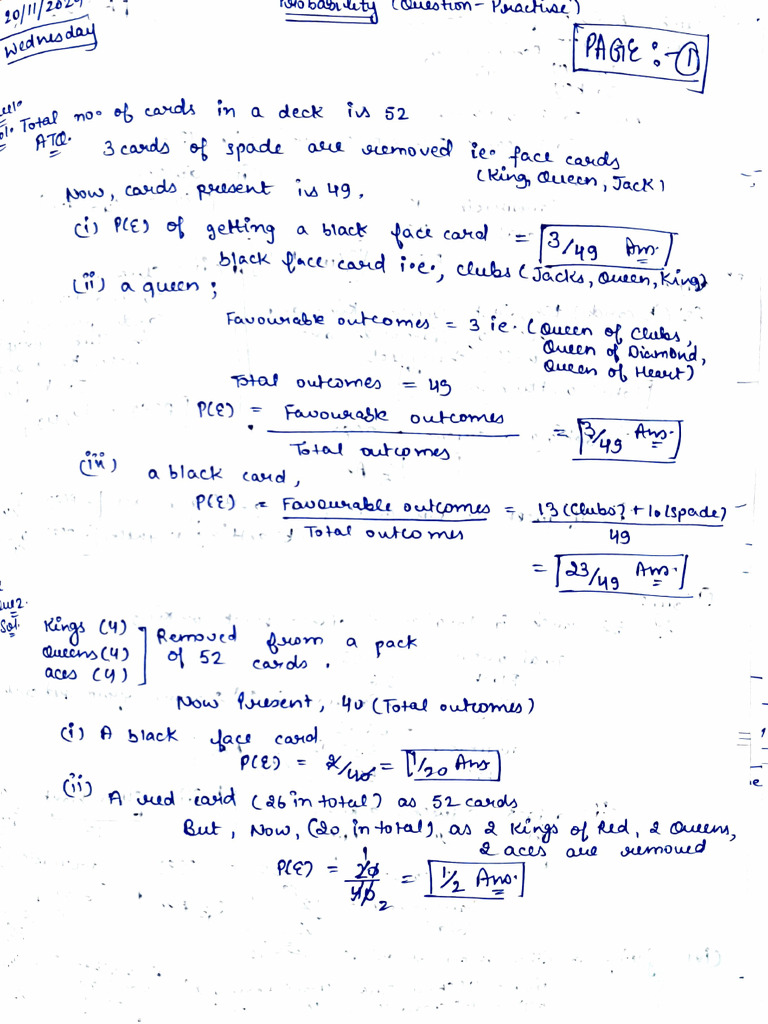 20/11/2024
Probability (Question-Practise)
Wednesday
PAGE:-①
Total no. of cards in a deck is 52
ATQ. 3 cards of spade are removed ie. face cards
(King, Queen, Jack)
Now, cards present is 49.
(i) P(E) of getting a black face card = 3/49 Ans.
black face card i.e., clubs (Jacks, Queen, King)
(ii) a queen ;
Favourable outcomes = 3 ie. (Queen of Clubs,
Queen of Diamond,
Queen of Heart)
Total outcomes = 49
P(E) = Favourable outcomes / Total outcomes = 3/49 Ans.
(iii) a black card,
P(E) = Favourable outcomes / Total outcomes = 13 (Clubs) + 10 (Spade) / 49
= 23/49 Ans.
Que 2.
Sol. Kings (4)
Queens (4)
aces (4)
Removed from a pack
of 52 cards.
Now Present, 40 (Total outcomes)
(i) A black face card
P(E) = 2/40 = 1/20 Ans
(ii) A red card (26 in total) as 52 cards
But, Now, (20, in total), as 2 Kings of Red, 2 Queens,
2 aces are removed
P(E) = 20/40 = 1/2 Ans.